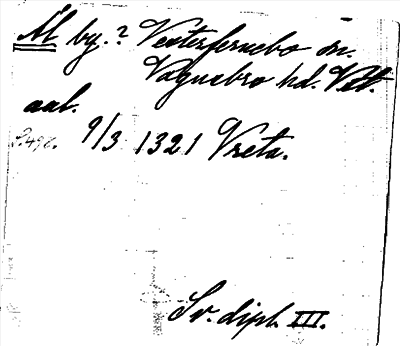 Ål by.? Vesterfernebo sn.
Vagnsbro hd. Vstl.
aal.
9/3 1321 Vreta.
Sv. dipl. III.